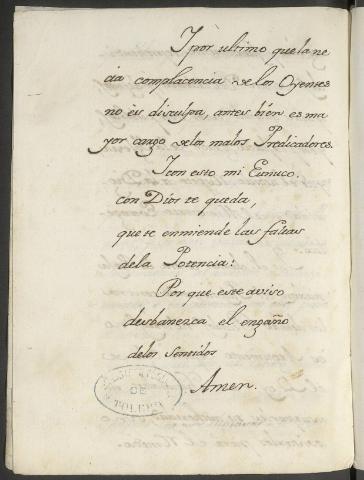 Y por ultimo que la ne
cia complacencia de los Oyentes
no es disculpa, antes bien es ma
yor cargo de los malos Predicadores.
Y con esto mi Eunuco.
con Dios te queda,
que te enmiende las faltas
de la Potencia:
Por que este aviso
desbanezca el engaño
de los Sentidos
Amen.
DE
TOLEDO